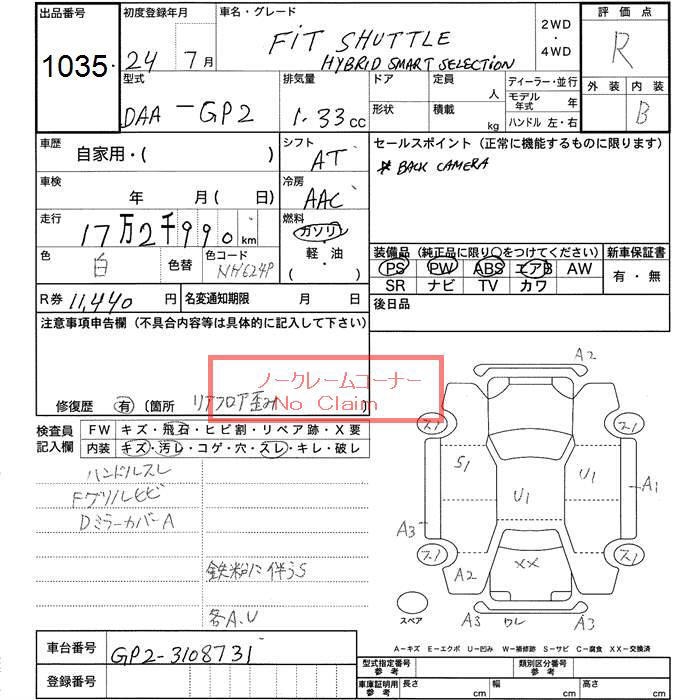 出品番号 初度登録年月 車名・グレード 2WD ・ 4WD 評価点
1035 24年 7月 FiT SHUTTLE R
HYBRID SMART SELECTiON
型式 排気量 ドア 定員 人 ディーラー・並行 外装 内装
DAA-GP2 1.33cc 形状 積載 kg モデル年式 年 B
ハンドル 左・右
車歴 自家用・( ) シフト AT セールスポイント (正常に機能するものに限ります)
* BACK CAMERA
車検 年 月 ( 日) 冷房 AAC
走行 17万2千990km 燃料 ガソリン
・
軽・油
( )
色 白 色替 色コード NH624P
装備品 (純正品に限り○をつけてください) 新車保証書
PS PW ABS エアB AW 有・無
SR ナビ TV カワ
R券 11,440円 名変通知期限 月 日 後日品
注意事項申告欄 (不具合内容等は具体的に記入して下さい)
ノークレームコーナー
No Claim
修復歴 有 〔箇所 リアフロア歪み
検査員記入欄 FW キズ・飛石・ヒビ割・リペア跡・X要
内装 キズ・汚レ・コゲ・穴・スレ・キレ・破レ
ハンドルスレ
Fグリルヒビ
DミラーカバーA
鉄粉に伴うS
各A.U
A2
ス1 ス1
S1 U1 U1 A1
A3
ス1 ス1
A2 XX
A3 ワレ A3
スペア
A-キズ E-エクボ U-凹み W-補修跡 S-サビ C-腐食 XX-交換済
車台番号 GP2-3108731
登録番号
型式指定番号 参考 類別区分番号 参考
車庫証明用 参考 長さ cm 幅 cm 高さ cm